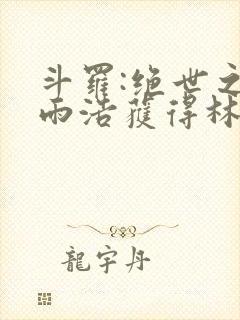 斗羅:绝世之
雨浩獲得林
龍宇丹